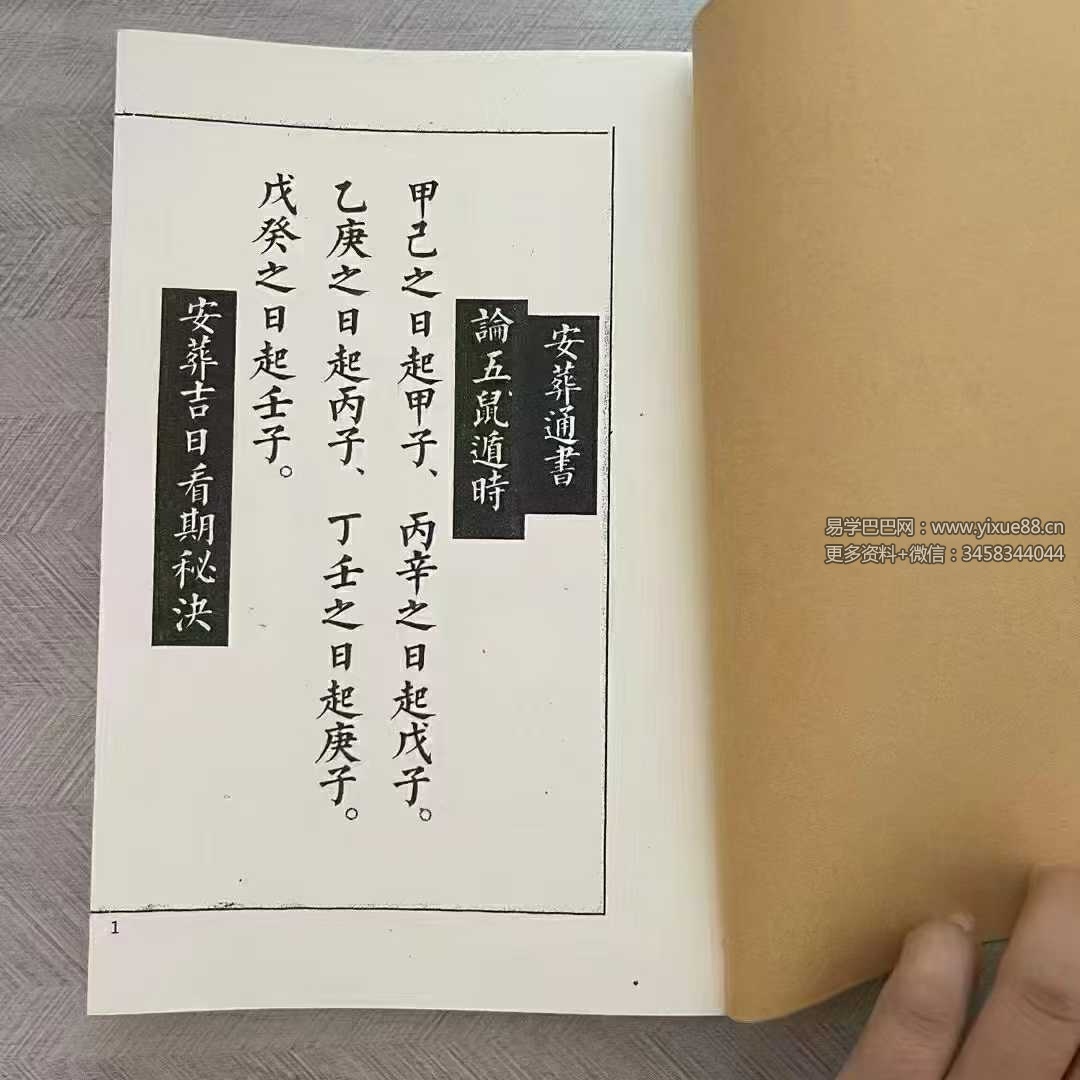 安葬通書
論五鼠遁時
甲己之日起甲子、丙辛之日起戊子。
乙庚之日起丙子、丁壬之日起庚子。
戊癸之日起壬子。
安葬吉日看期秘決
1
易学巴巴网：www.yixue88.cn
更多资料+微信：3458344044